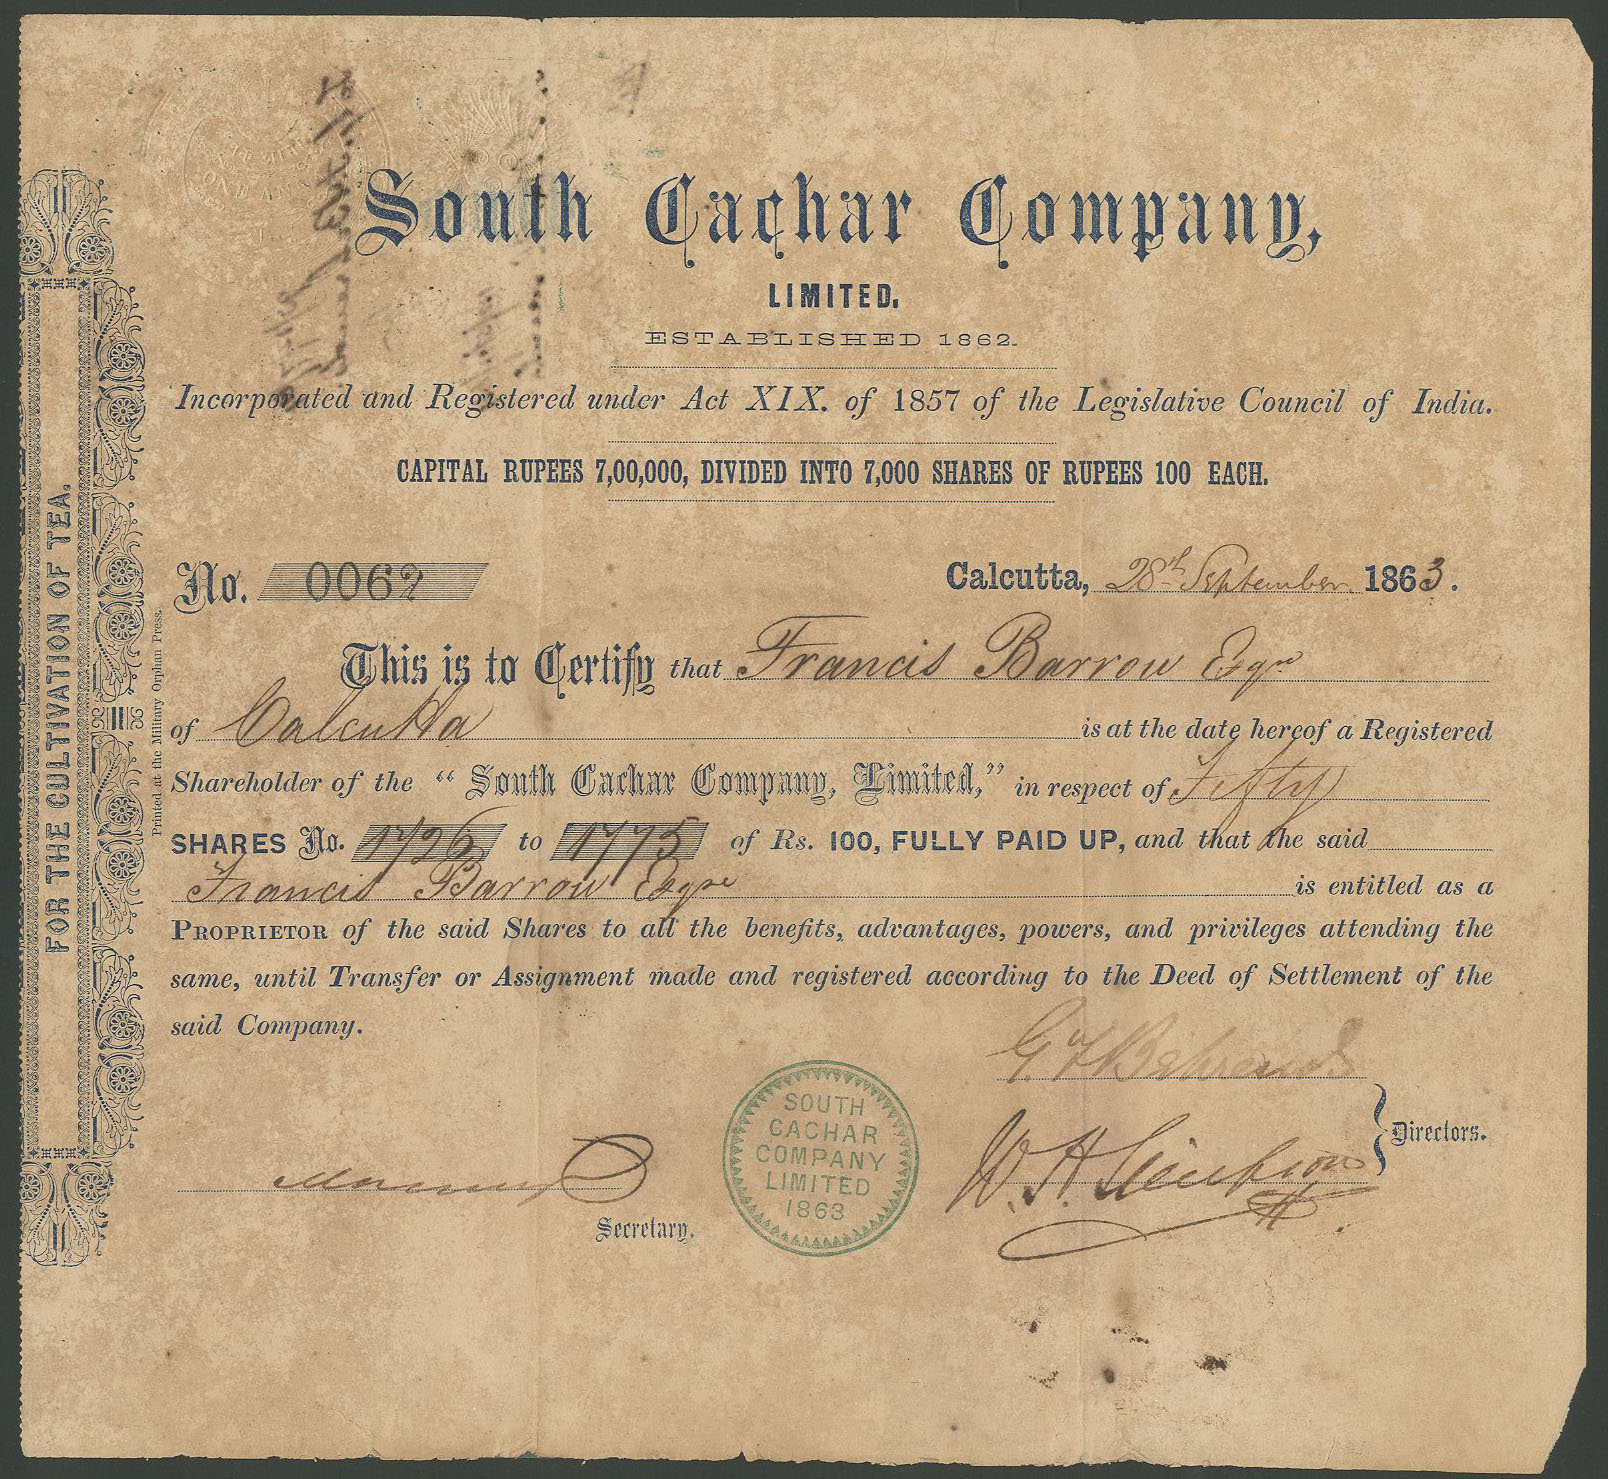 South Cachar Company,
LIMITED.
ESTABLISHED 1862.
Incorporated and Registered under Act XIX. of 1857 of the Legislative Council of India.
CAPITAL RUPEES 7,00,000, DIVIDED INTO 7,000 SHARES OF RUPEES 100 EACH.
No. 0062
Calcutta, 28th September 1863.
This is to Certify that Francis Barrow Esqre
of Calcutta is at the date hereof a Registered
Shareholder of the "South Cachar Company, Limited," in respect of Fifty
SHARES No. 1726 to 1775 of Rs. 100, FULLY PAID UP, and that the said
Francis Barrow Esqre is entitled as a
PROPRIETOR of the said Shares to all the benefits, advantages, powers, and privileges attending the
same, until Transfer or Assignment made and registered according to the Deed of Settlement of the
said Company.
Directors.
W. H.
Secretary.
SOUTH
CACHAR
COMPANY
LIMITED
1863
FOR THE CULTIVATION OF TEA.
Printed at the Military Orphan Press.